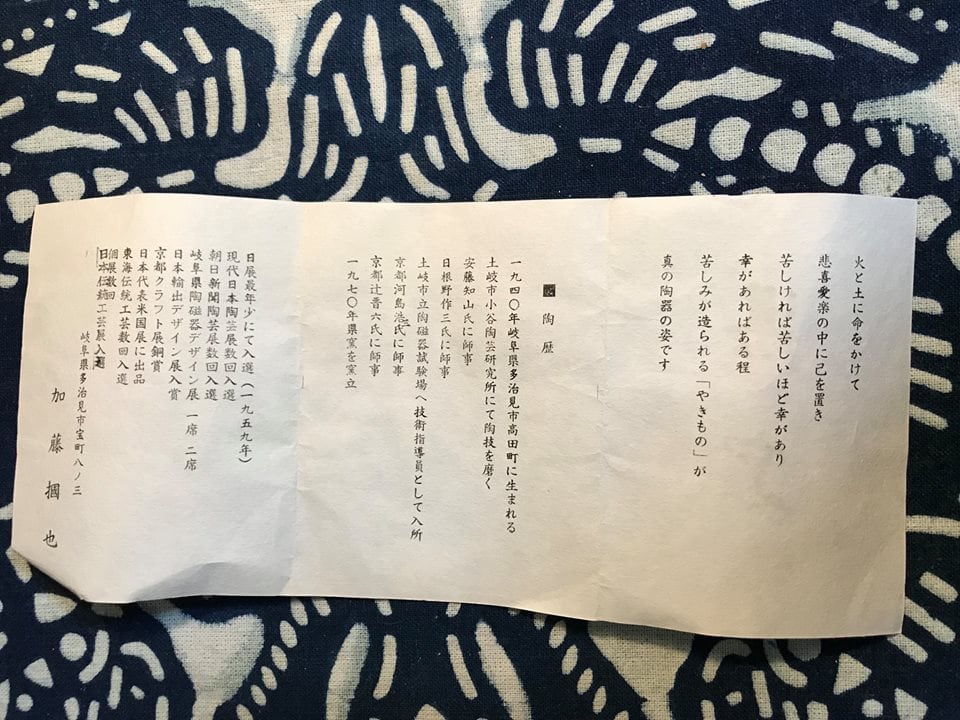 火と土に命をかけて
悲喜愛楽の中に己を置き
苦しければ苦しいほど幸があり
幸があればある程
苦しみが造られる「やきもの」が
真の陶器の姿です
陶歴
一九四〇年岐阜県多治見市高田町に生まれる
土岐市小谷陶芸研究所にて陶技を磨く
安藤知山氏に師事
日根野作三氏に師事
土岐市立陶磁器試験場へ技術指導員として入所
京都河島浩氏に師事
京都辻晋六氏に師事
一九七〇年県窯を窯立
日展最年少にて入選(一九五九年)
現代日本陶芸展数回入選
朝日新聞陶芸展数回入選
岐阜県陶磁器デザイン展 一席 二席
日本輸出デザイン展入賞
京都クラフト展銅賞
日本代表米国展に出品
東海伝統工芸数回入選
個展数回
日本伝統工芸展入選
岐阜県多治見市宝町八ノ三
加藤摑也